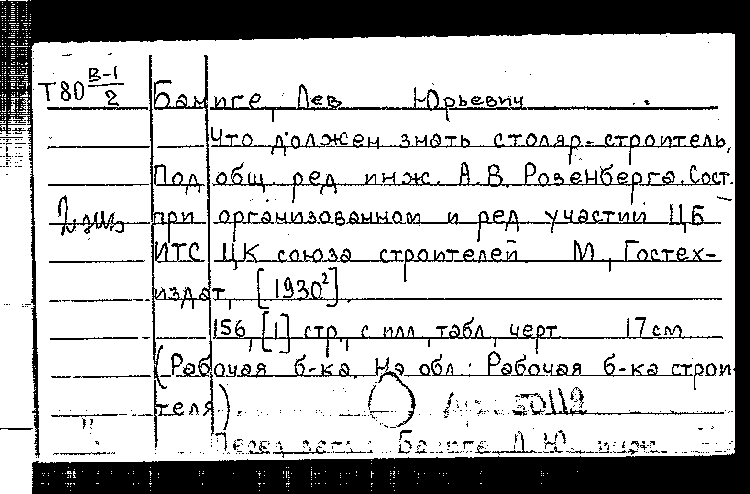 Т80 В-1/2
Бамите, Лев Юрьевич
Что должен знать столяр-строитель.
Под общ. ред инж. А.В. Розенберга. Сост.
2 экз
при организованном и ред участии ЦБ
ИТС ЦК союза строителей М., Гостех-
издат, [1930²].
156, [1] стр., с илл, табл, черт 17 см
(Рабочая б-ка. На обл.: Рабочая б-ка строи
теля). 50112
Перед загл: Ю. инж.